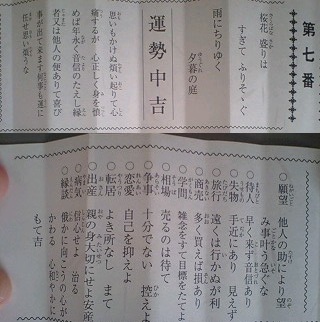 第七番
桜花 盛りは
すぎて ふりそゝぐ
雨にちりゆく
夕暮の庭
運勢 中吉
思いもかけぬ煩い起りて心
痛するが 心正しく身を慎
めば年永く音信のたえし縁
者又は他人の便ありて喜び
事が出て来ます何事も運に
任せ思い煩うな
○願望 他人の助により望
み事叶う急ぐな
○待人 早く来ず音信あり
○失物 手近にあり 見えず
○旅行 遠くは行かぬが利
○商売 多く買えば損あり
○学問 雑念をすて目標をたてよ
○相場 売るのは待て
○争事 十分でない 控えよ
○恋愛 自己を抑えよ
○転居 よき所なし まて
○出産 親の身大切にせよ安産
○病気 信心せよ 治る
○縁談 俄かに向こうの心が
かわる 心和やかに
もて吉